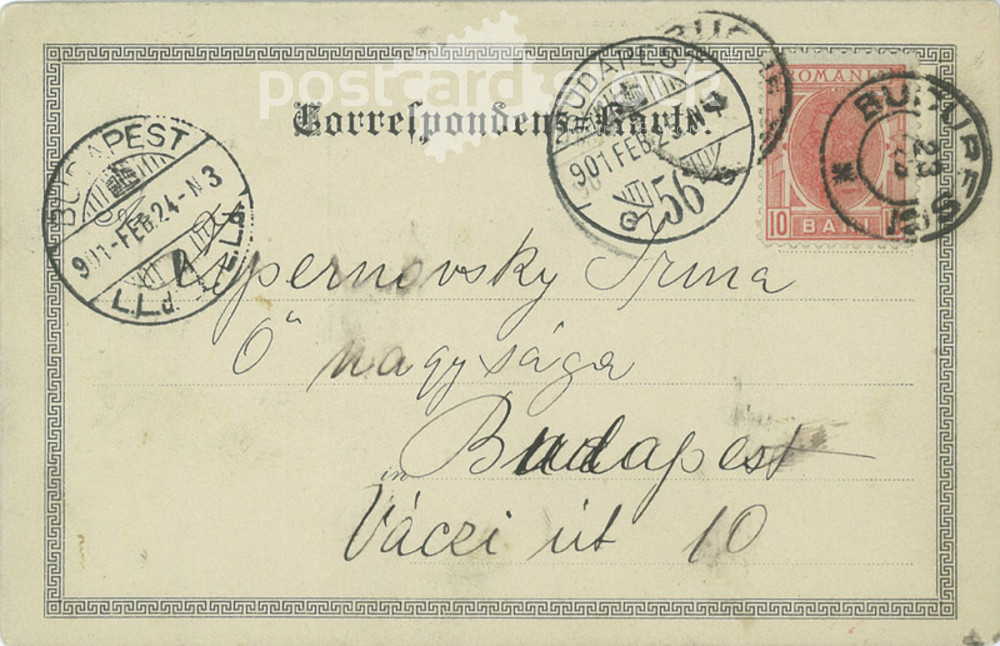 postcard
Correspondenz-Karte.
BUDAPEST
901 FEB. 2 N
56
ROMANIA
10 BANI
BUCUR
23
BUDAPEST
901-FEB.24-N3
L.L.d. L.L.d.
Zipernovsky Irma
Ő" nagysága
in Budapest
Váczi út 10